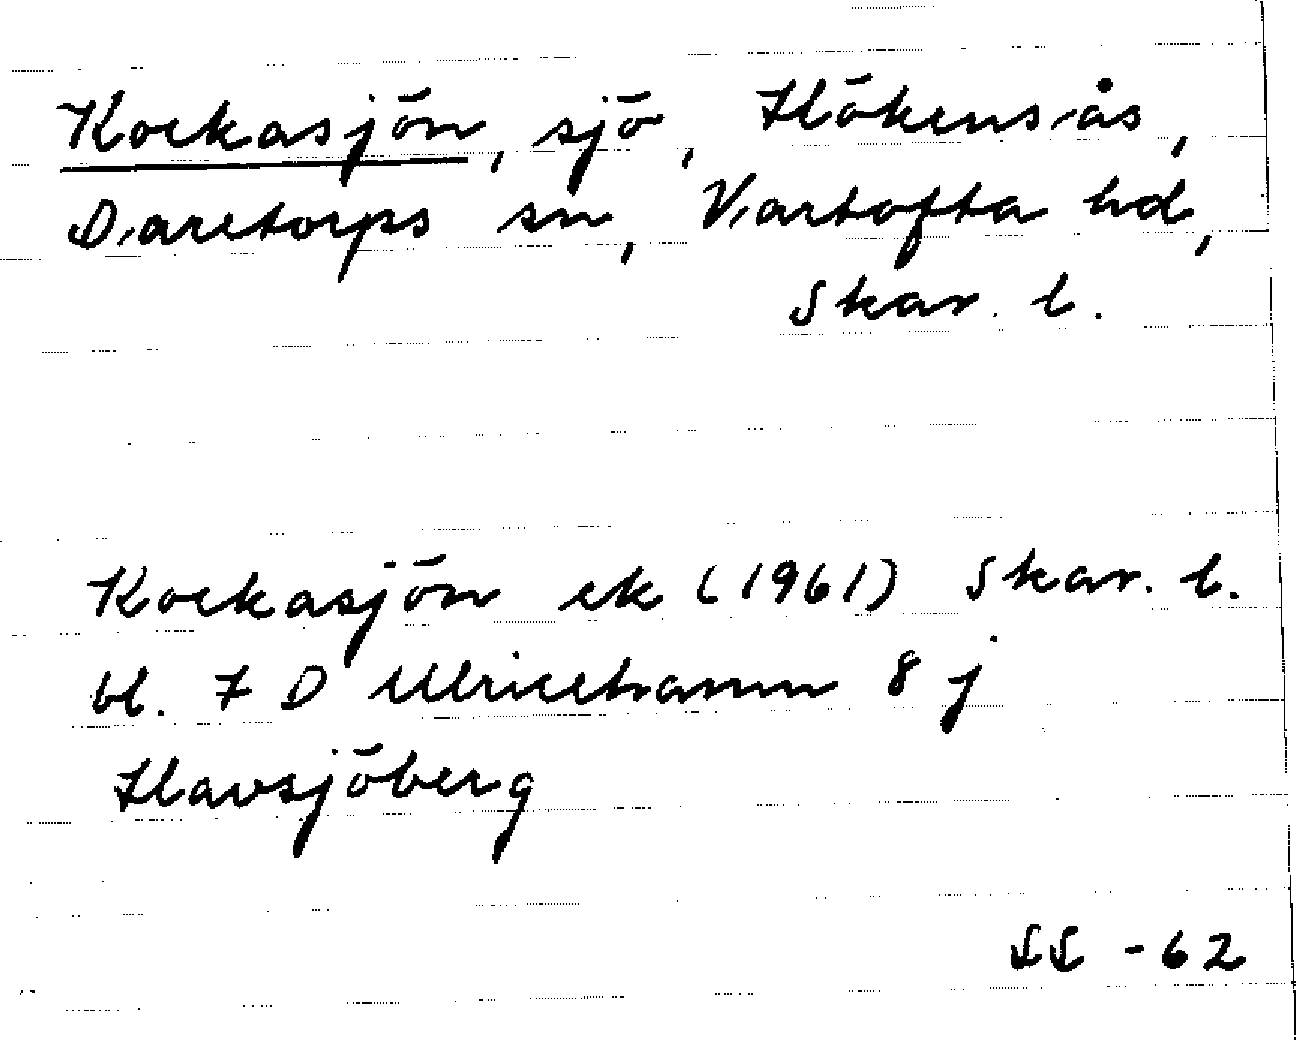 Kockasjön, sjö, Hökensås,
Daretorps sn, Vartofta hd,
Skar. l.
Kockasjön ek (1961) Skar. l.
bl. 7 D Ulricehamn 8 j
Havsjöberg
SS -62